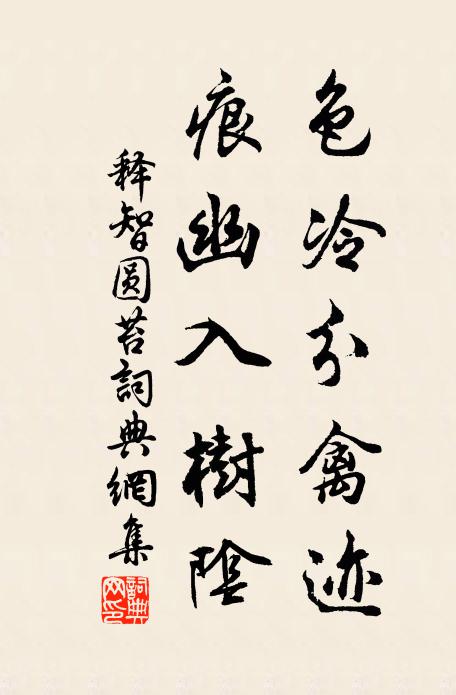 色冷分禽迹
痕幽入樹陰
释智圆苔詞典網集
詞典网印